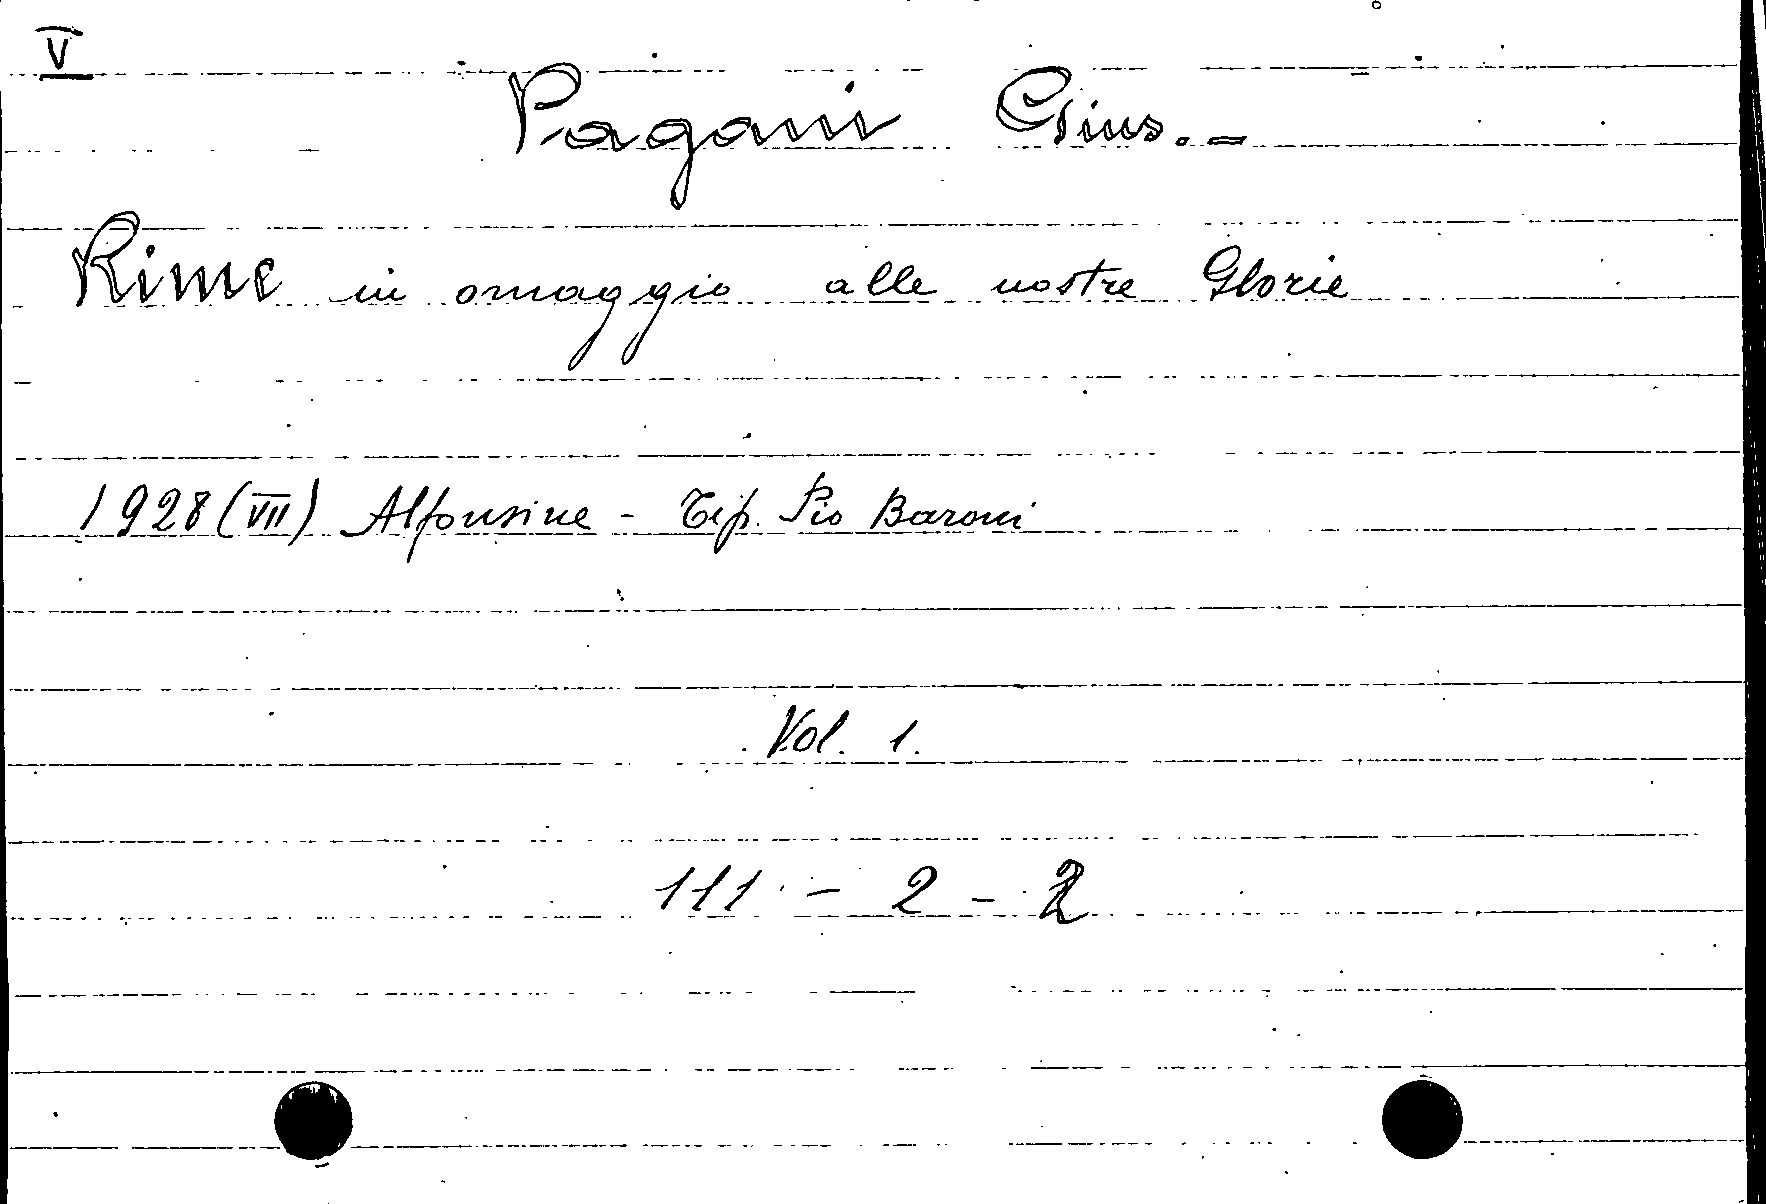 V
Pagani Gius. =
Rime in omaggio alle nostre Glorie
1928 (VII) Alfonsine - Tip. Pio Baroni
Vol. 1.
111 - 2 - 2